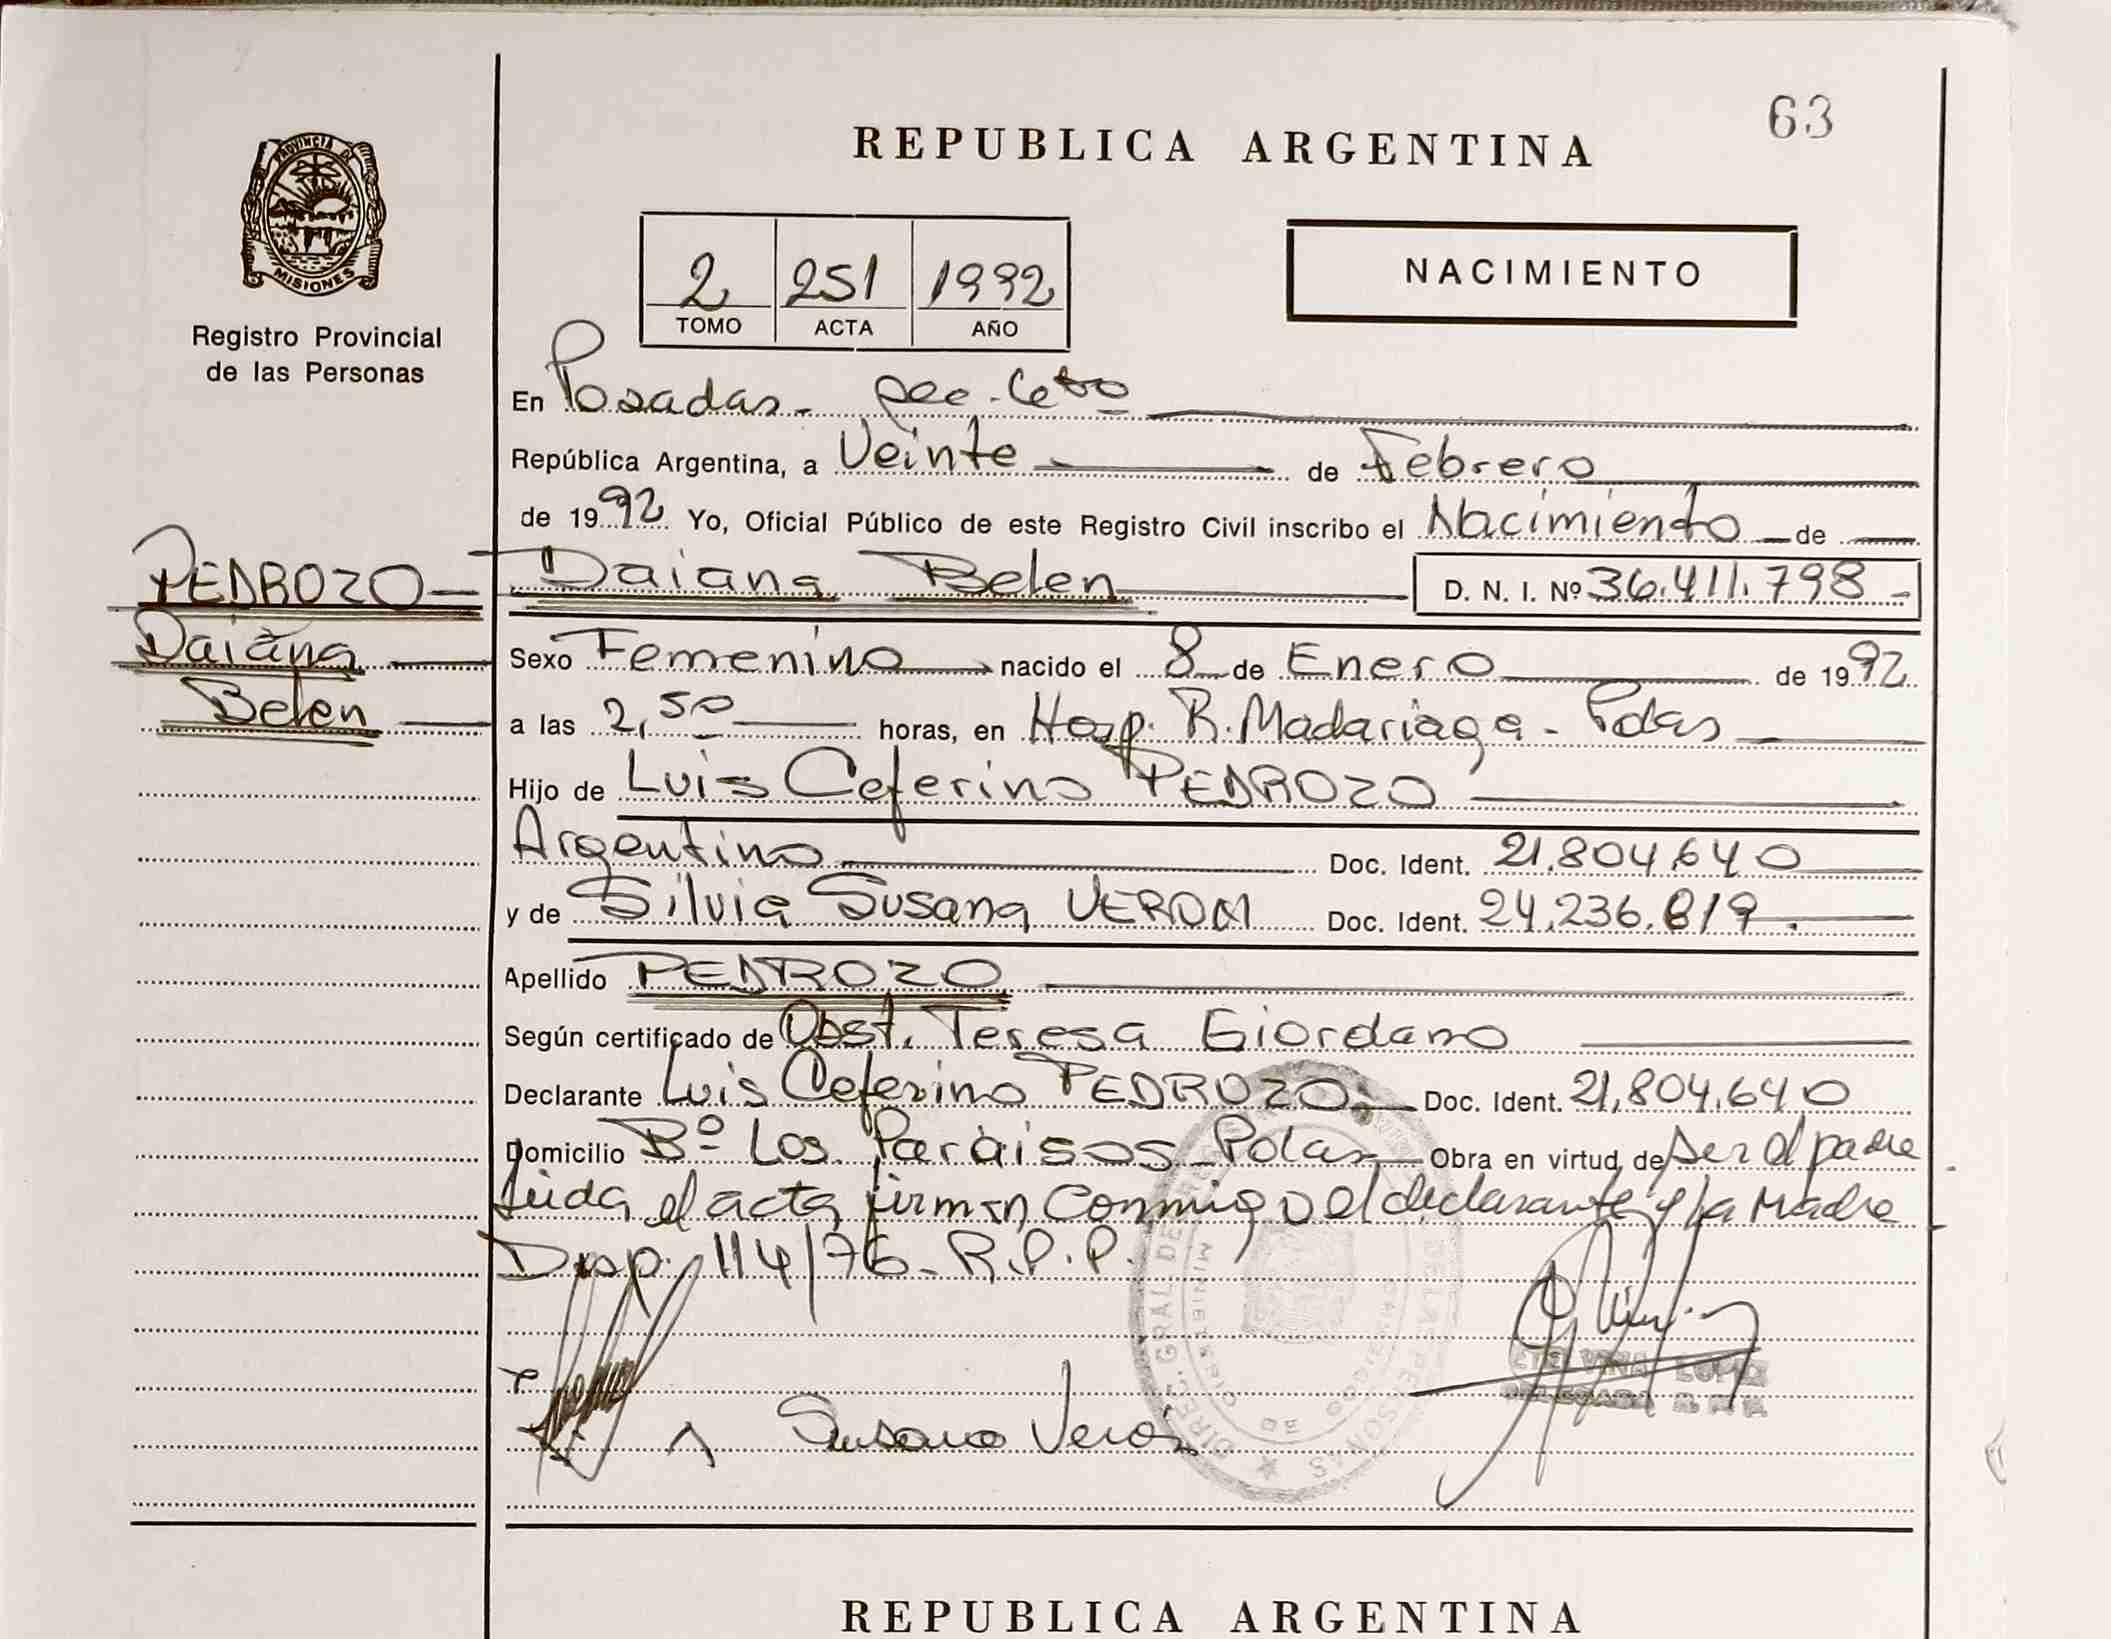 63
REPUBLICA ARGENTINA
PROVINCIA DE
MISIONES
Registro Provincial
de las Personas
2 251 1992
TOMO ACTA AÑO
NACIMIENTO
En Posadas - Sec. Ctro
República Argentina, a Veinte de Febrero
de 1992 Yo, Oficial Público de este Registro Civil inscribo el Nacimiento de
PEDROZO
Daiana
Belen
Daiana Belen D. N. I. Nº 36.411.798
Sexo Femenino nacido el 8 de Enero de 1992
a las 2,50 horas, en Hosp. R. Madariaga - Pdas
Hijo de Luis Ceferino PEDROZO
Argentino Doc. Ident. 21.804.640
y de Silvia Susana VERON Doc. Ident. 24.236.819.
Apellido PEDROZO
Según certificado de Obst. Teresa Giordano
Declarante Luis Ceferino PEDROZO Doc. Ident. 21.804.640
Domicilio Bº Los Paraisos - Pdas Obra en virtud de Ser el padre
Leida el acta, firman conmigo el declarante y la Madre
Disp. 114/76 - R.P.P.
Susana Verón
LOPEZ
REPUBLICA ARGENTINA